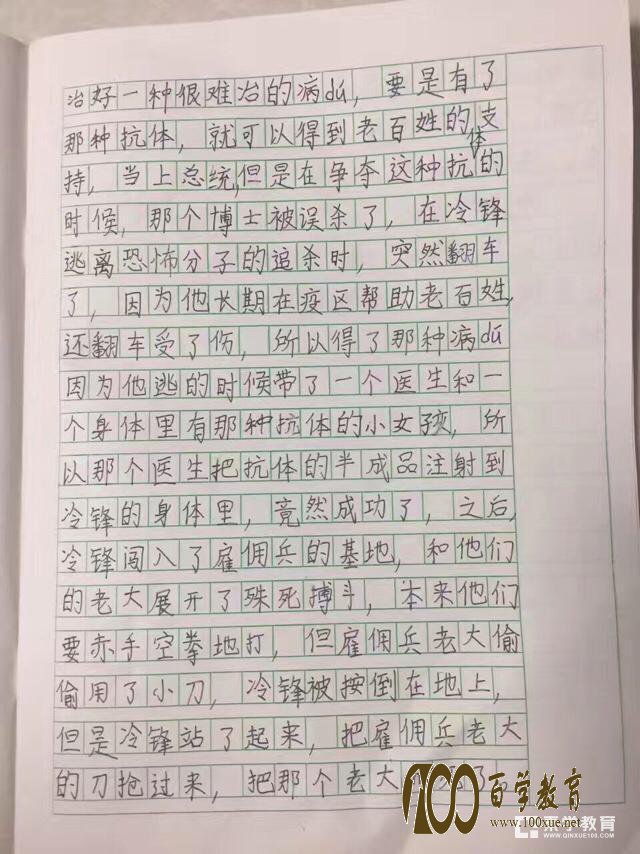 治好一种很难治的病dú，要是有了
那种抗体，就可以得到老百姓的支
持，当上总统，但是在争夺这种抗体的
时候，那个博士被误杀了，在冷锋
逃离恐怖分子的追杀时，突然翻车
了，因为他长期在疫区帮助老百姓，
还翻车受了伤，所以得了那种病dú
因为他逃的时候带了一个医生和一
个身体里有那种抗体的小女孩，所
以那个医生把抗体的半成品注射到
冷锋的身体里，竟然成功了，之后，
冷锋闯入了雇佣兵的基地，和他们
的老大展开了殊死搏斗，本来他们
要赤手空拳地打，但雇佣兵老大偷
偷用了小刀，冷锋被按倒在地上，
但是冷锋站了起来，把雇佣兵老大
的刀抢过来，把那个老大了。
100百学教育
www.100xue.net
亲学教育
WWW.QINXUE.COM